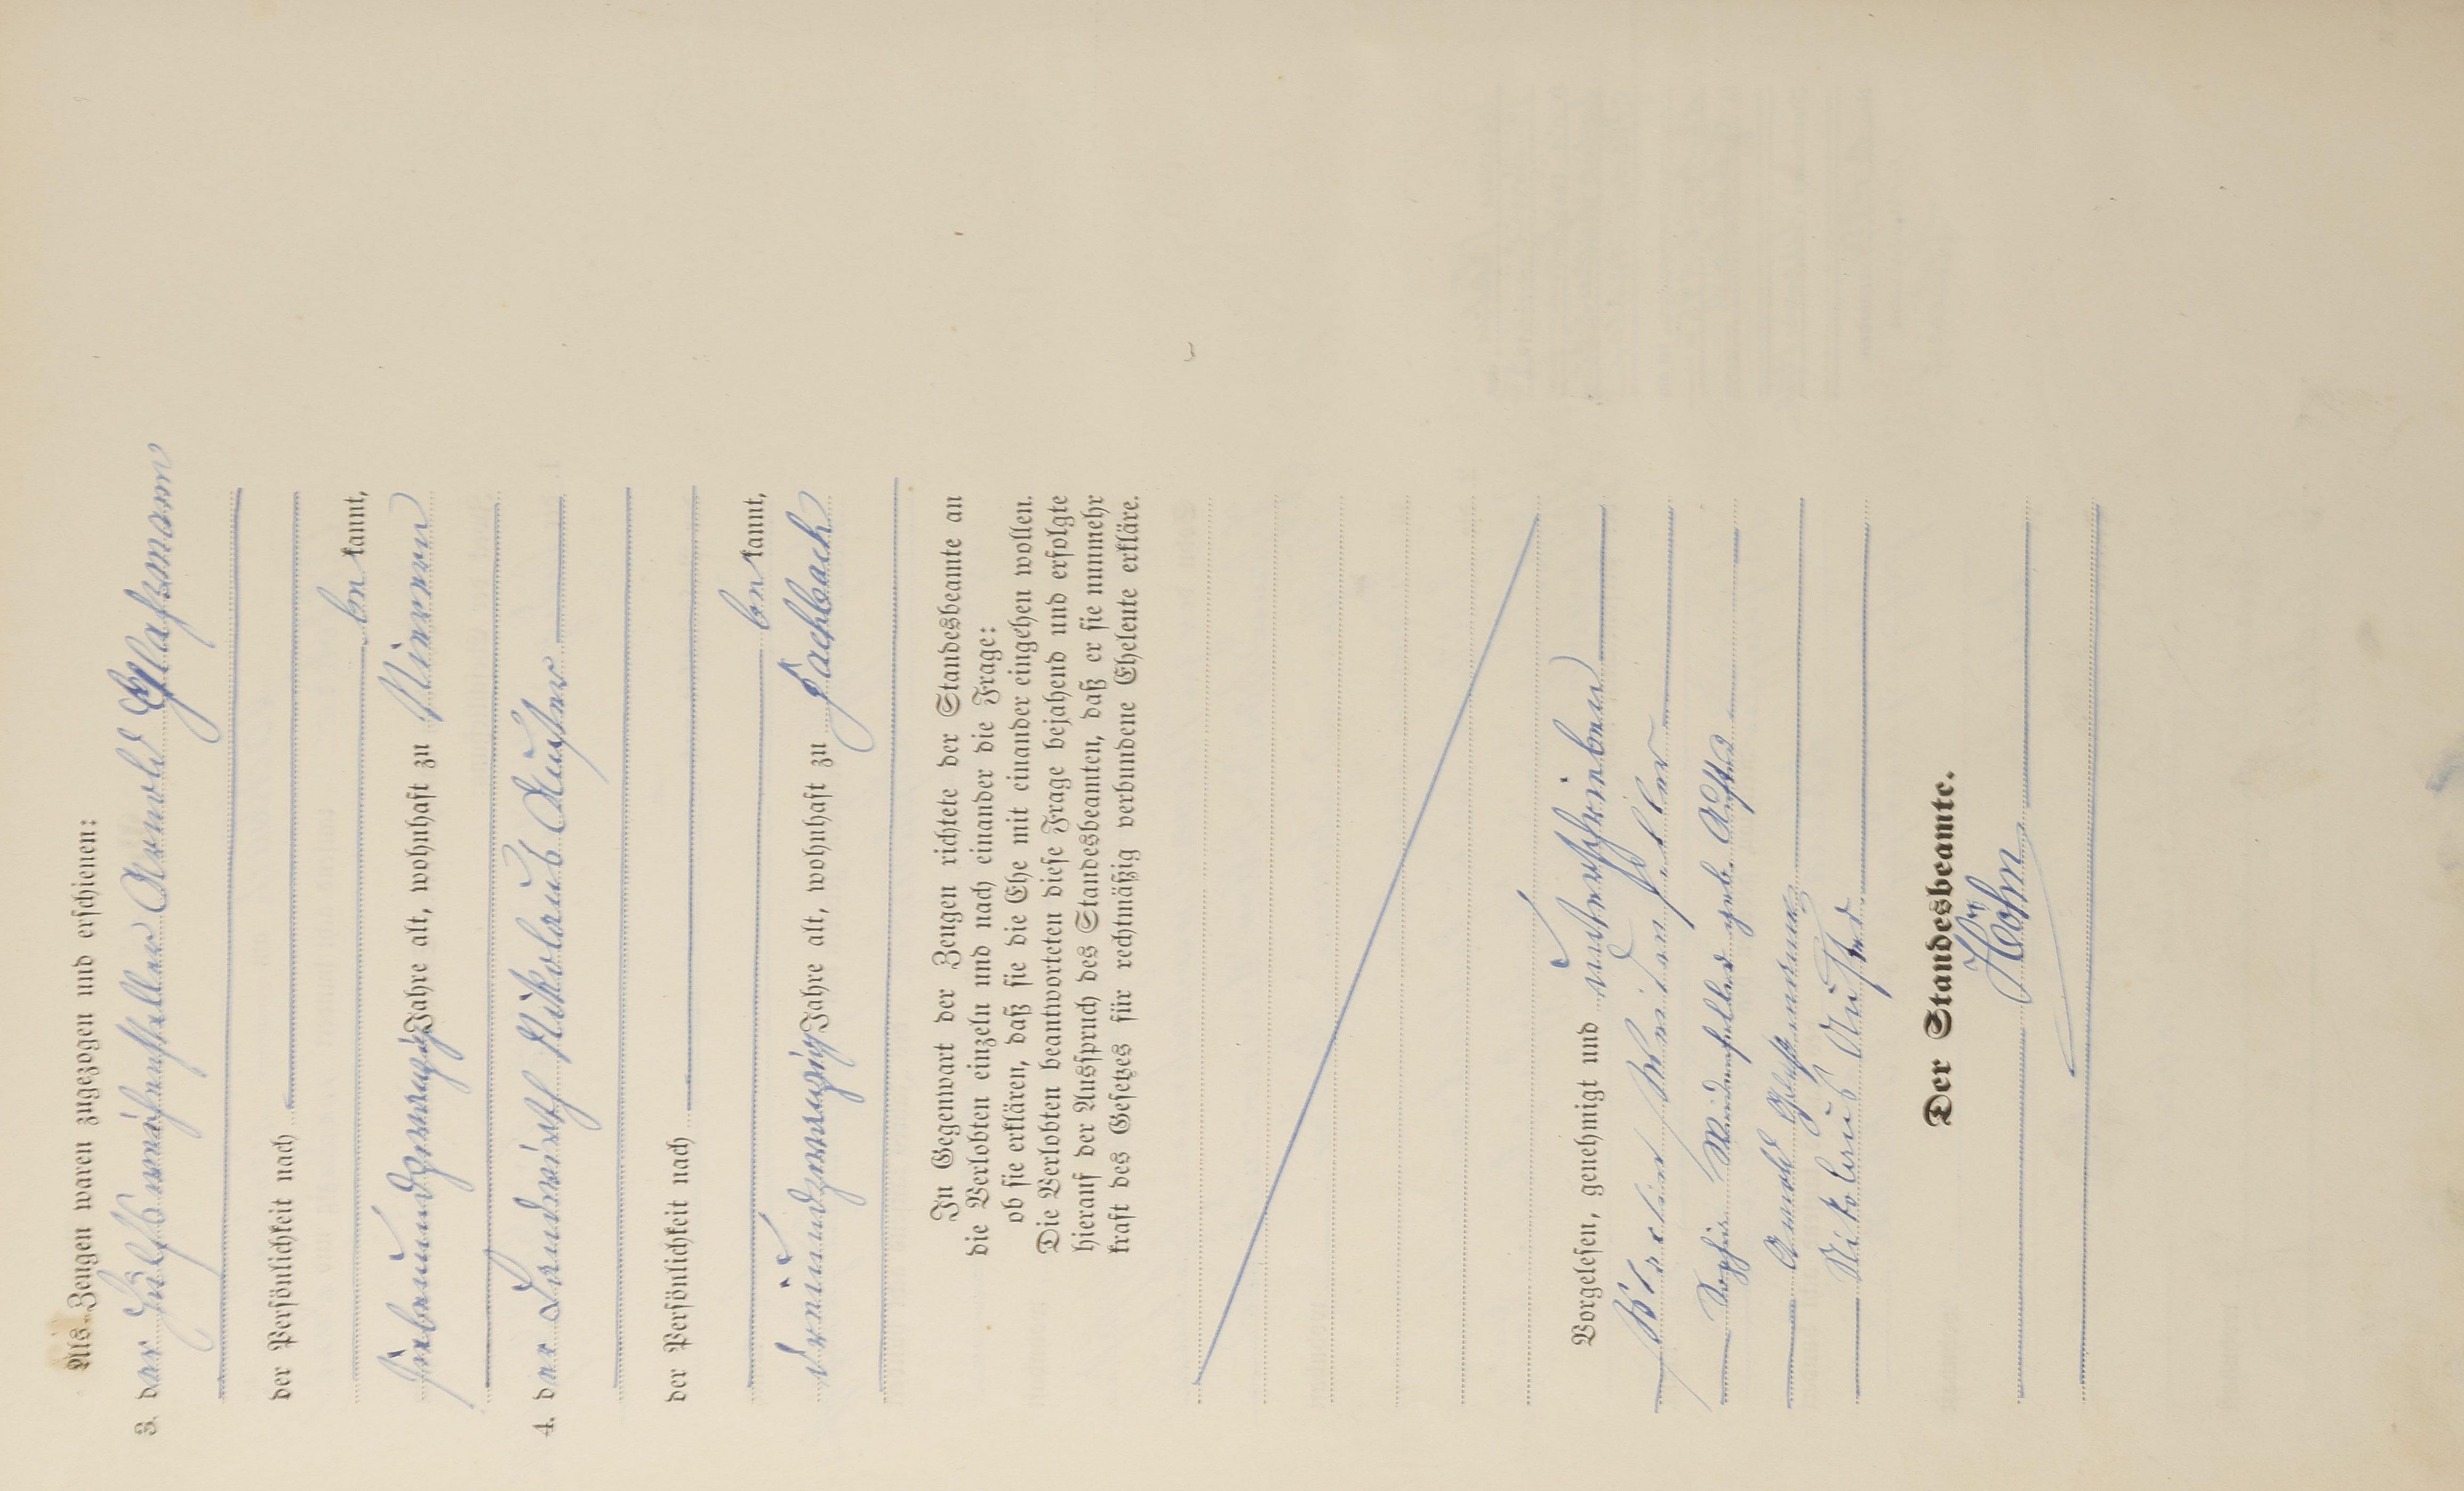 Als Zeugen waren zugezogen und erschienen:
3. der Hülfsweichensteller Arnold Glaßmann
der Persönlichkeit nach
be kannt,
siebenundzwanzig Jahre alt, wohnhaft zu Nievern
4. der Landwirth Nikolaus Auster
der Persönlichkeit nach
be kannt,
dreiundzwanzig Jahre alt, wohnhaft zu Fachbach
In Gegenwart der Zeugen richtete der Standesbeamte an
die Verlobten einzeln und nach einander die Frage:
ob sie erklären, daß sie die Ehe mit einander eingehen wollen.
Die Verlobten beantworteten diese Frage bejahend und erfolgte
hierauf der Ausspruch des Standesbeamten, daß er sie nunmehr
kraft des Gesetzes für rechtmäßig verbundene Eheleute erkläre.
Vorgelesen, genehmigt und unterschrieben
Weidenfeller
Sophie Weidenfeller geb. Auster
Arnold Glaßmann
Nikolaus Auster
Der Standesbeamte.
Höhn